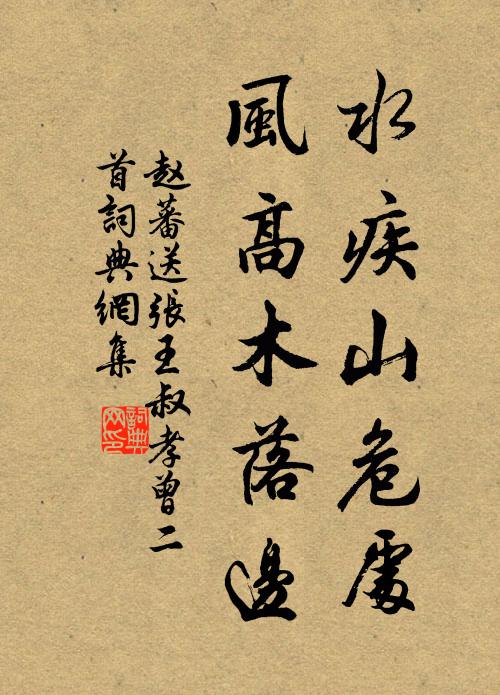 水疾山危處
風高木落邊
赵蕃送張王叔孝曾二
首詞典網集
詞典網印